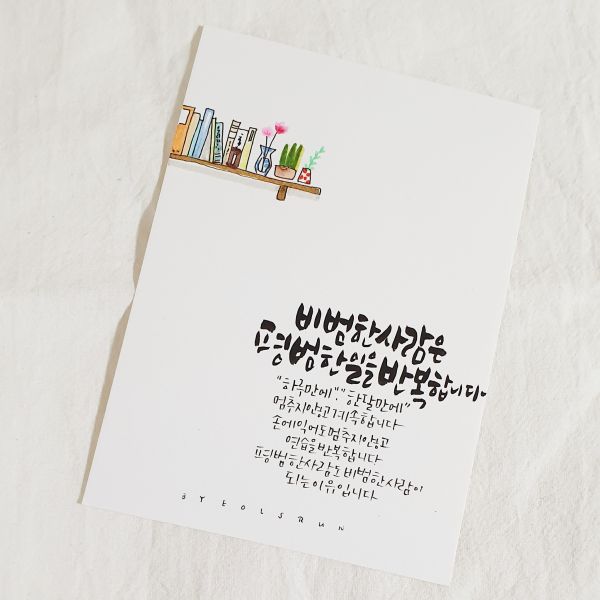 비범한 사람은
평범한 일을 반복합니다.
"하루만에" "한달만에"
멈추지않고 계속합니다
손에익어도 멈추지않고
연습을 반복합니다
평범한사람도 비범한사람이
되는이유입니다
BYEOLSRUN